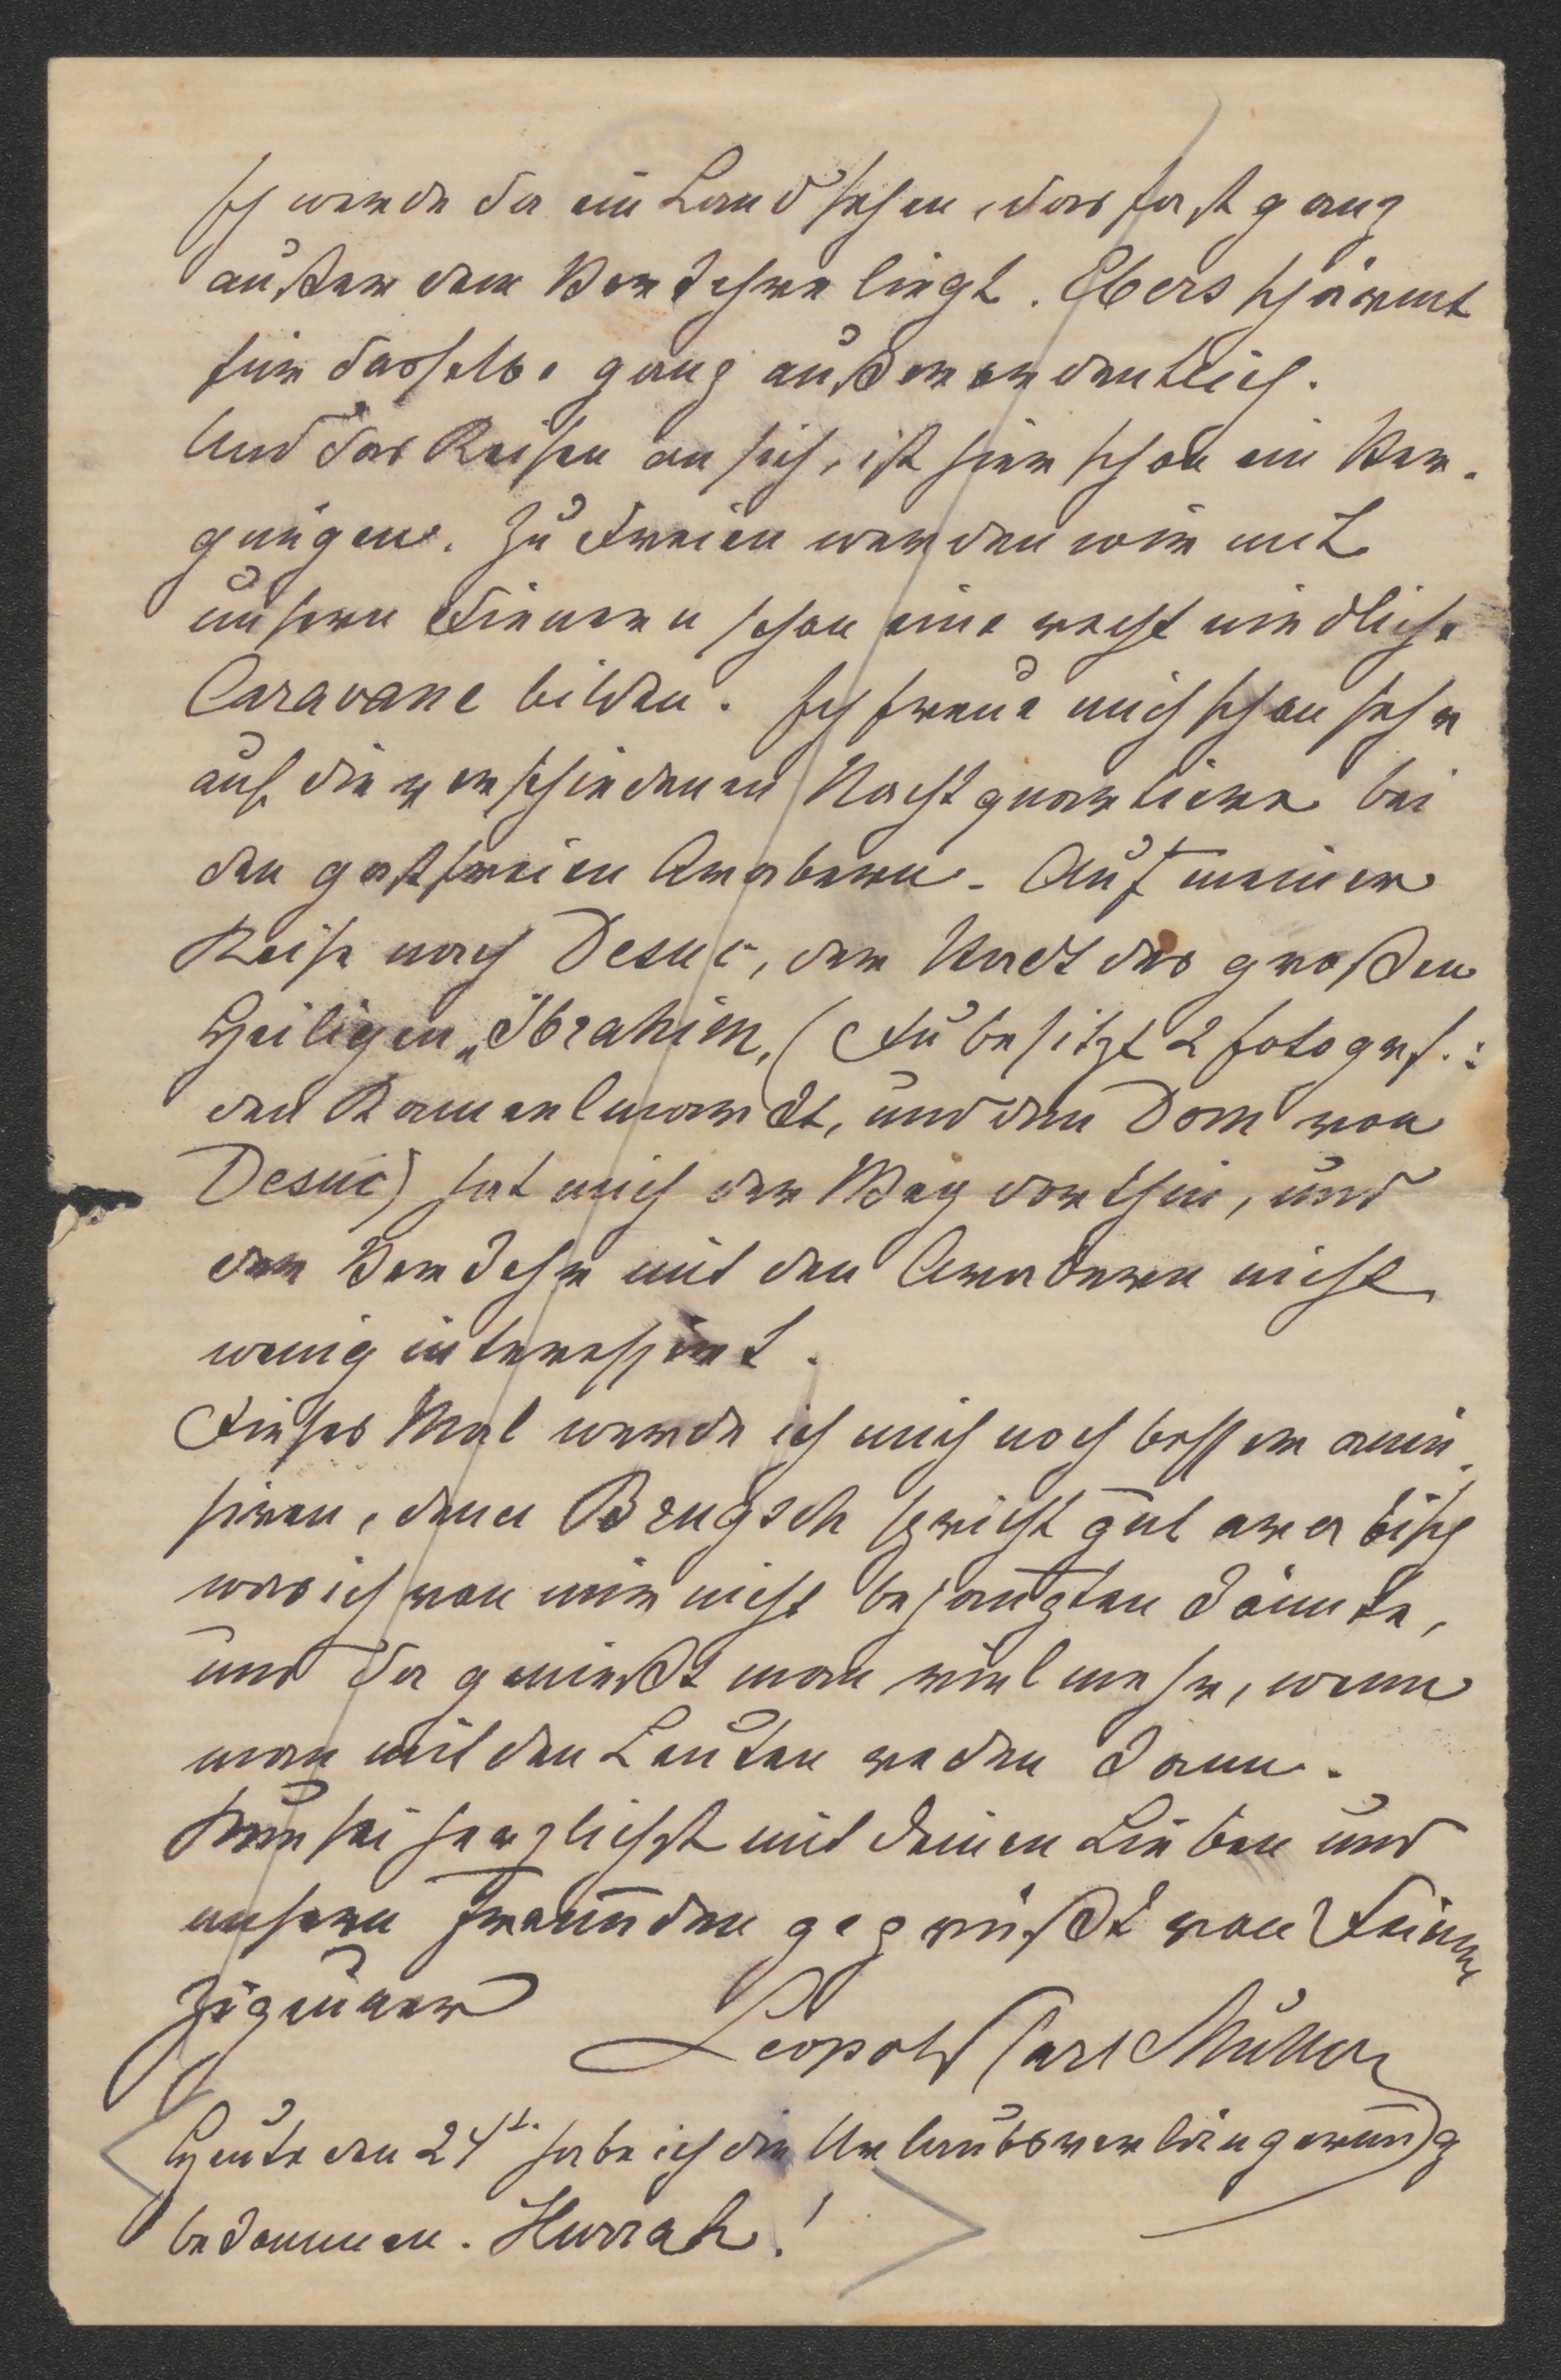 Ich werde da ein Land sehen, das fast ganz
außer dem Verkehre liegt. Ebers schwärmt
für dasselbe ganz außerordentlich.
Und das Reisen an sich, ist hier schon ein Ver-
gnügen. Zu Dreien werden wir mit
unseren Dienern schon eine recht niedliche
Caravane bilden. Ich freue mich schon sehr
auf die verschiedenen Nachtquartiere bei
den gastfreien Arabern. Auf meiner
Reise nach Desuc, der Stadt des großen
Heiligen „Ibrahim, (Du besitzt 2 fotogrf.:
den Kameelmarkt, und den Dom von
Desuc) hat mich der Weg dorthin, und
der Verkehr mit den Arabern nicht
wenig interessirt.
Dieses Mal werde ich mich noch besser amü-
siren, denn Brugsch spricht gut arabisch
was ich von mir nicht behaupten könnte,
und da genießt man viel mehr, wenn
man mit den Leuten reden kann.
Nun sei herzlichst mit deinen Lieben und
unseren Freunden gegrüßt von Deinem
Zigeuner
Leopold Carl Müller
Heute den 24t. habe ich die Urlaubsverlängerung
bekommen. Hurrah!